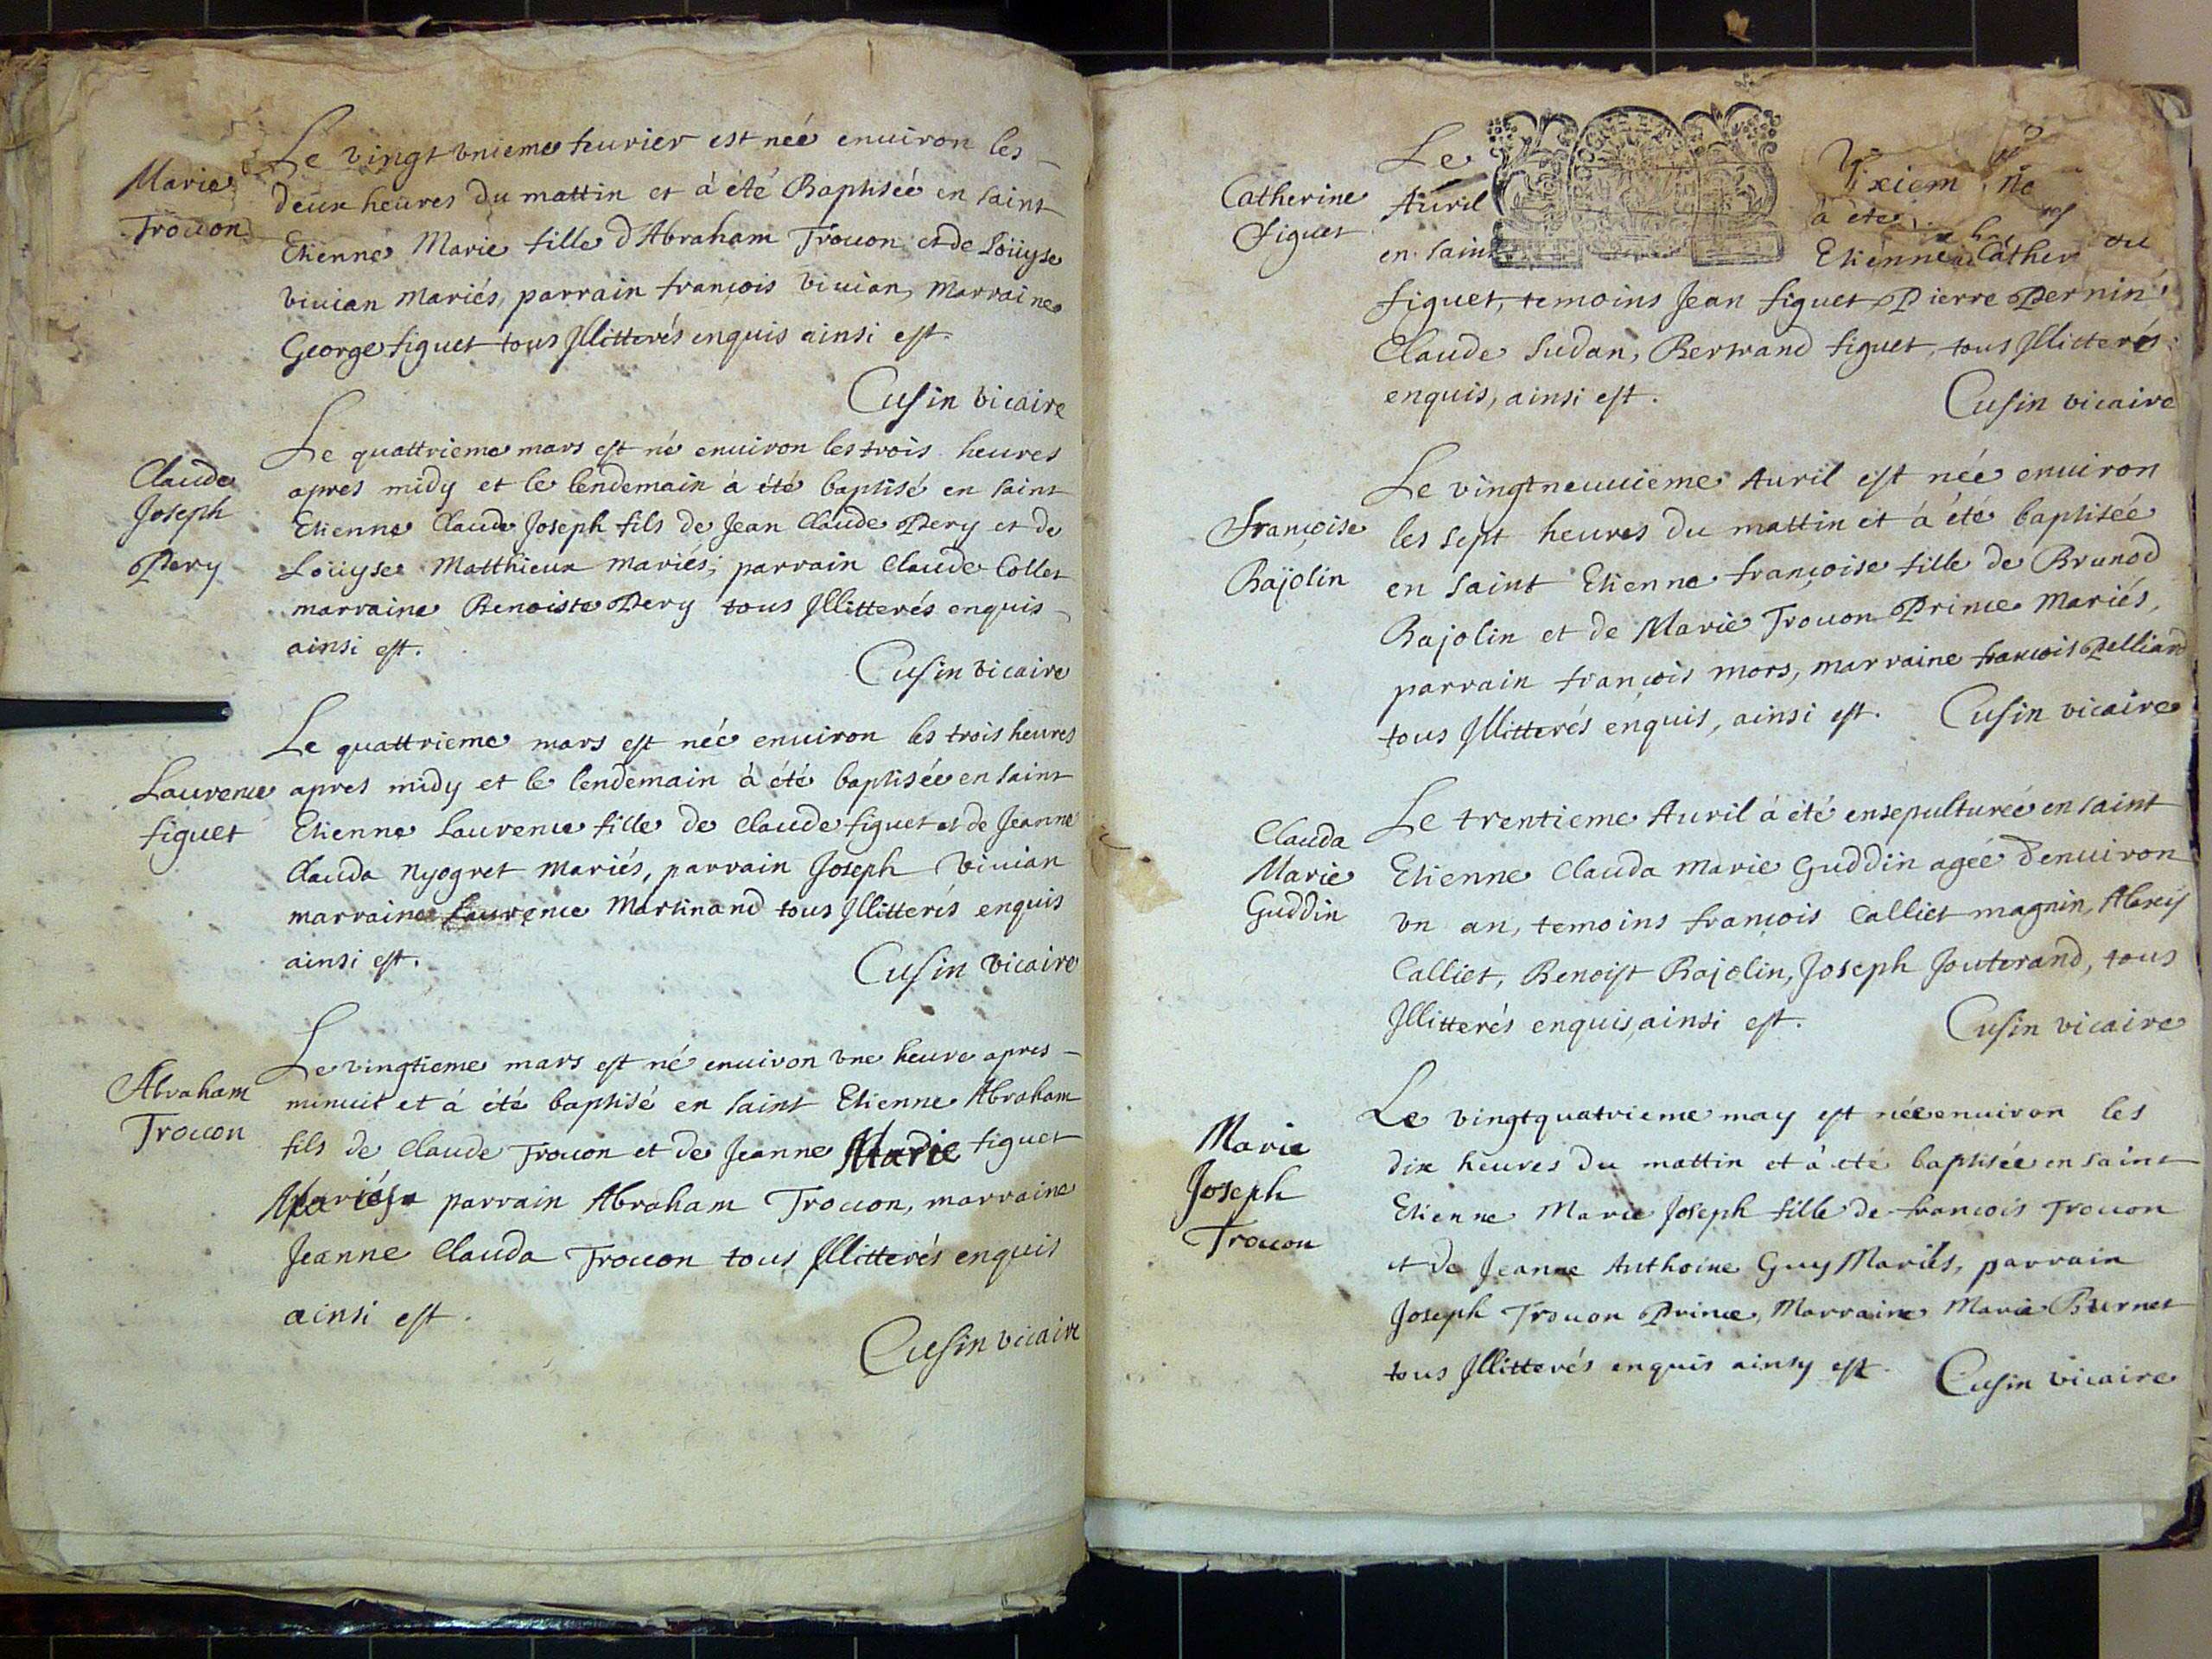 Marie
Trouon
Le vingt unieme feurier est née enuiron les
deux heures du mattin et à été Baptisée en saint
Etienne Marie fille d'Abraham Trouon et de Loüyse
viuian Mariés, parrain françois viuian, Marraine
George figuet tous Jllitterés enquis ainsi est.
Cusin vicaire
Claude
Joseph
Pery
Le quattrieme mars est né enuiron les trois heures
apres midy et le lendemain à été baptisé en saint
Etienne Claude Joseph fils de Jean Claude Pery et de
Loüyse Matthieux mariés, parrain Claude Collet
marraine Benoiste Pery tous Jllitterés enquis
ainsi est.
Cusin vicaire
Laurence
figuet
Le quattrieme mars est née enuiron les trois heures
apres midy et le lendemain à été baptisée en saint
Etienne Laurence fille de Claude figuet et de Jeanne
Clauda Nyogret Mariés, parrain Joseph Viuian
marraine Laurence Martinand tous Jllitterés enquis
ainsi est.
Cusin vicaire
Abraham
Trouon
Le vingtieme mars est né enuiron vne heure apres
minuit et à été baptisé en saint Etienne Abraham
fils de Claude Trouon et de Jeanne Marie figuet
Mariés parrain Abraham Trouon, marraine
Jeanne Clauda Trouon tous Jllitterés enquis
ainsi est.
Cusin vicaire
Catherine
figuet
Le
Auril à été
en saint Etienne
figuet, temoins Jean figuet, Pierre Pernin,
Claude Sudan, Bertrand figuet, tous Jllitterés
enquis, ainsi est.
Cusin vicaire
Françoise
Bajolin
Le vingtneuuieme Auril est née enuiron
les sept heures du mattin et à été baptisée
en saint Etienne françoise fille de Brunod
Bajolin et de Marie Trouon Prince Mariés,
parrain françois mors, marraine francois Pelliand
tous Jllitterés enquis, ainsi est. Cusin vicaire
Clauda
Marie
Guddin
Le trentieme Auril à été ensepulturée en saint
Etienne Clauda Marie Guddin agée d'enuiron
vn an, temoins françois Calliet magnin, Alexis
Calliet, Benoist Bajolin, Joseph Jouterand, tous
Jllitterés enquis, ainsi est.
Cusin vicaire
Marie
Joseph
Trouon
Le vingtquatrieme may est née enuiron les
dix heures du mattin et à été baptisée en saint
Etienne Marie Joseph fille de francois Trouon
et de Jeanne Anthoine Guy Mariés, parrain
Joseph Trouon Prince, Marraine Marie Burnet
tous Jllitterés enquis ainsy est. Cusin vicaire